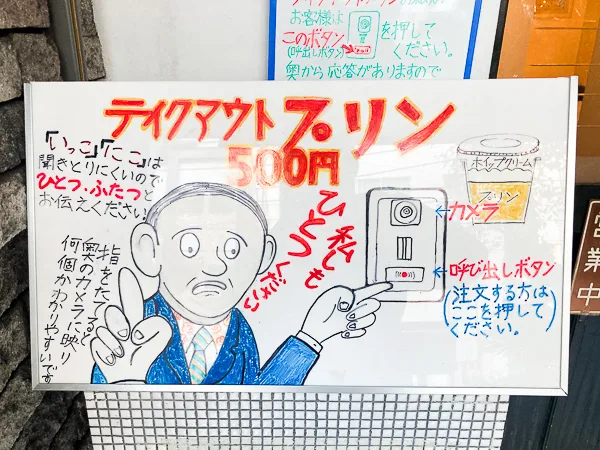 お客様は
このボタン
(呼出しボタン)
を押して
ください。
奥から応答がありますので
テイクアウトプリン
500円
「いっこ」「にこ」は
聞きとりにくいので
ひとつ・ふたつと
お伝えください
指をたてると
奥のカメラに映り
何個かわかりやすいです
私にも
ひとつ
ください
ホイップクリーム
プリン
←カメラ
←呼び出しボタン
(注文する方は
ここを押して
ください。)
営業中